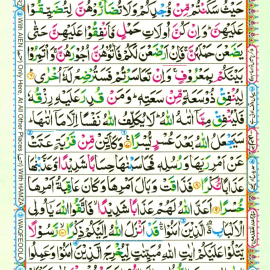 حَيْثُ سَكَنْتُمْ مِّنْ وُّجْدِكُمْ وَلَا تُضَآرُّوْهُنَّ لِتُضَيِّقُوْا
عَلَيْهِنَّ ؕ وَاِنْ كُنَّ اُولَاتِ حَمْلٍ فَاَنْفِقُوْا عَلَيْهِنَّ حَتّٰى
يَضَعْنَ حَمْلَهُنَّ ۚ فَاِنْ اَرْضَعْنَ لَكُمْ فَاٰتُوْهُنَّ اُجُوْرَهُنَّ ۚ وَاْتَمِرُوْا
بَيْنَكُمْ بِمَعْرُوْفٍ ۚ وَاِنْ تَعَاسَرْتُمْ فَسَتُرْضِعُ لَهٗۤ اُخْرٰى
لِيُنْفِقْ ذُوْ سَعَةٍ مِّنْ سَعَتِهٖ ؕ وَمَنْ قُدِرَ عَلَيْهِ رِزْقُهٗ
فَلْيُنْفِقْ مِمَّاۤ اٰتٰىهُ اللّٰهُ ؕ لَا يُكَلِّفُ اللّٰهُ نَفْسًا اِلَّا مَاۤ اٰتٰىهَا ؕ
سَيَجْعَلُ اللّٰهُ بَعْدَ عُسْرٍ يُّسْرًا وَكَاَيِّنْ مِّنْ قَرْيَةٍ عَتَتْ
عَنْ اَمْرِ رَبِّهَا وَرُسُلِهٖ فَحَاسَبْنٰهَا حِسَابًا شَدِيْدًا ۙ وَّعَذَّبْنٰهَا
عَذَابًا نُّكْرًا فَذَاقَتْ وَبَالَ اَمْرِهَا وَكَانَ عَاقِبَةُ اَمْرِهَا
خُسْرًا اَعَدَّ اللّٰهُ لَهُمْ عَذَابًا شَدِيْدًا ۙ فَاتَّقُوا اللّٰهَ يٰۤاُولِى
الْاَلْبَابِ ۚ الَّذِيْنَ اٰمَنُوْا ۛ قَدْ اَنْزَلَ اللّٰهُ اِلَيْكُمْ ذِكْرًا رَّسُوْلًا
يَّتْلُوْا عَلَيْكُمْ اٰيٰتِ اللّٰهِ مُبَيِّنٰتٍ لِّيُخْرِجَ الَّذِيْنَ اٰمَنُوْا وَعَمِلُوا
With AIEN
Only Here, At All Other Places
With HAMZA